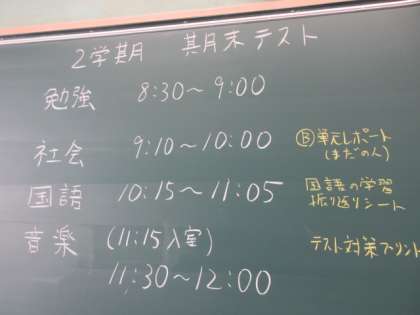 2学期 期月末テスト
勉強 8:30～9:00
社会 9:10～10:00 Ⓑ単元レポート
(まだの人)
国語 10:15～11:05 国語の学習
振り返りシート
音楽 (11:15入室) テスト対策プリント
11:30～12:00